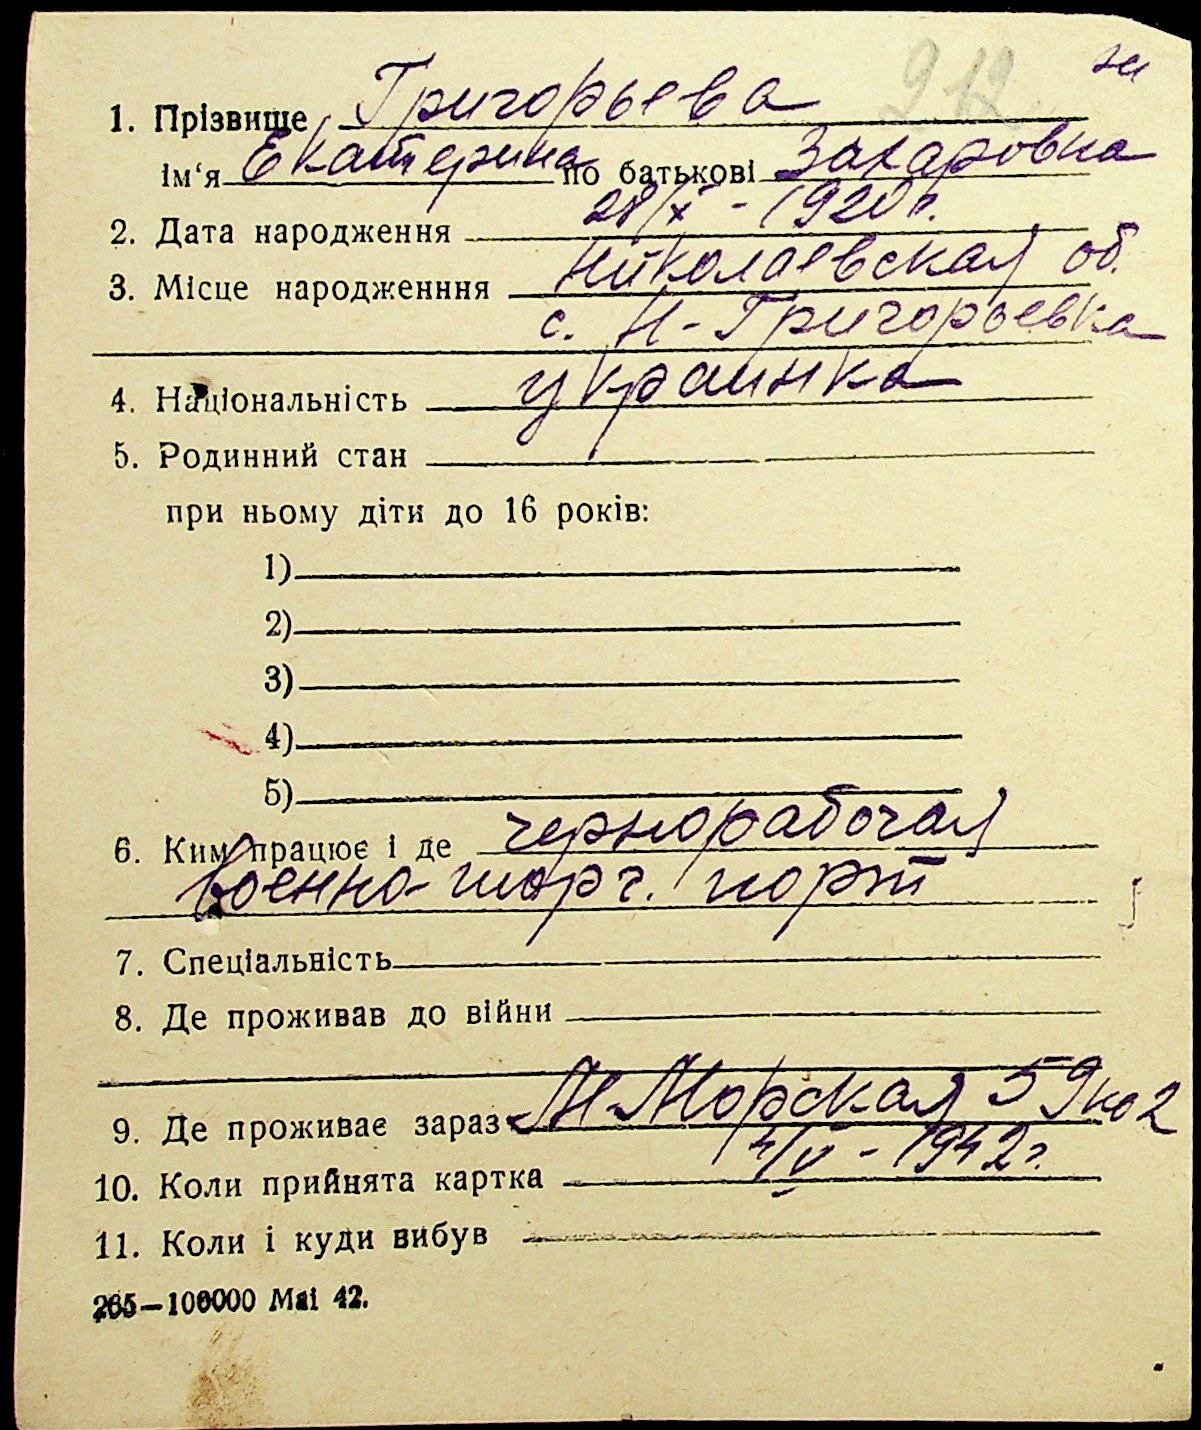 212
1. Прізвище Григорьева
ім'я Екатерина по батькові Захаровна
2. Дата народження 28/X - 1920 г.
3. Місце народженння Николаевская об.
с. Н-Григорьевка
4. Національність украинка
5. Родинний стан
при ньому діти до 16 років:
1)
2)
3)
4)
5)
6. Ким працює і де чернорабочая
Военно-торг. порт
7. Спеціальність
8. Де проживав до війни
9. Де проживає зараз М-Морская 59 2
10. Коли прийнята картка 4/V - 1942 г.
11. Коли і куди вибув
265—100000 Mai 42.